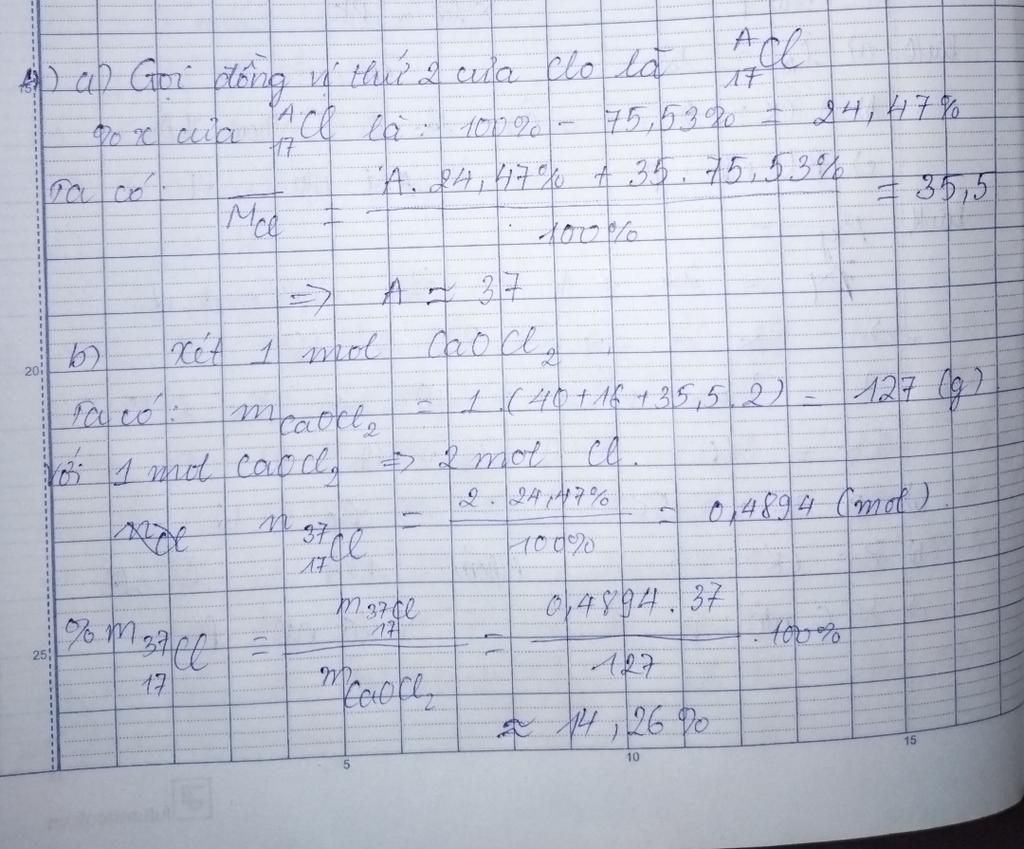 a) Gọi đồng vị thứ 2 của clo là ᴬ₁₇Cl
%x của ᴬ₁₇Cl là: 100% - 75,53% = 24,47%
Ta có: M̅Cl = (A . 24,47% + 35 . 75,53%) / 100% = 35,5
=> A ≈ 37
b) Xét 1 mol CaOCl₂
20
Ta có: mCaOCl₂ = 1.(40+16+35,5.2) = 127 (g)
Với 1 mol CaOCl₂ => 2 mol Cl.
n ³⁷₁₇Cl = (2 . 24,47%) / 100% = 0,4894 (mol)
%m ³⁷₁₇Cl = m ³⁷₁₇Cl / mCaOCl₂ = (0,4894 . 37) / 127 . 100%
25
≈ 14,26%
5 10 15